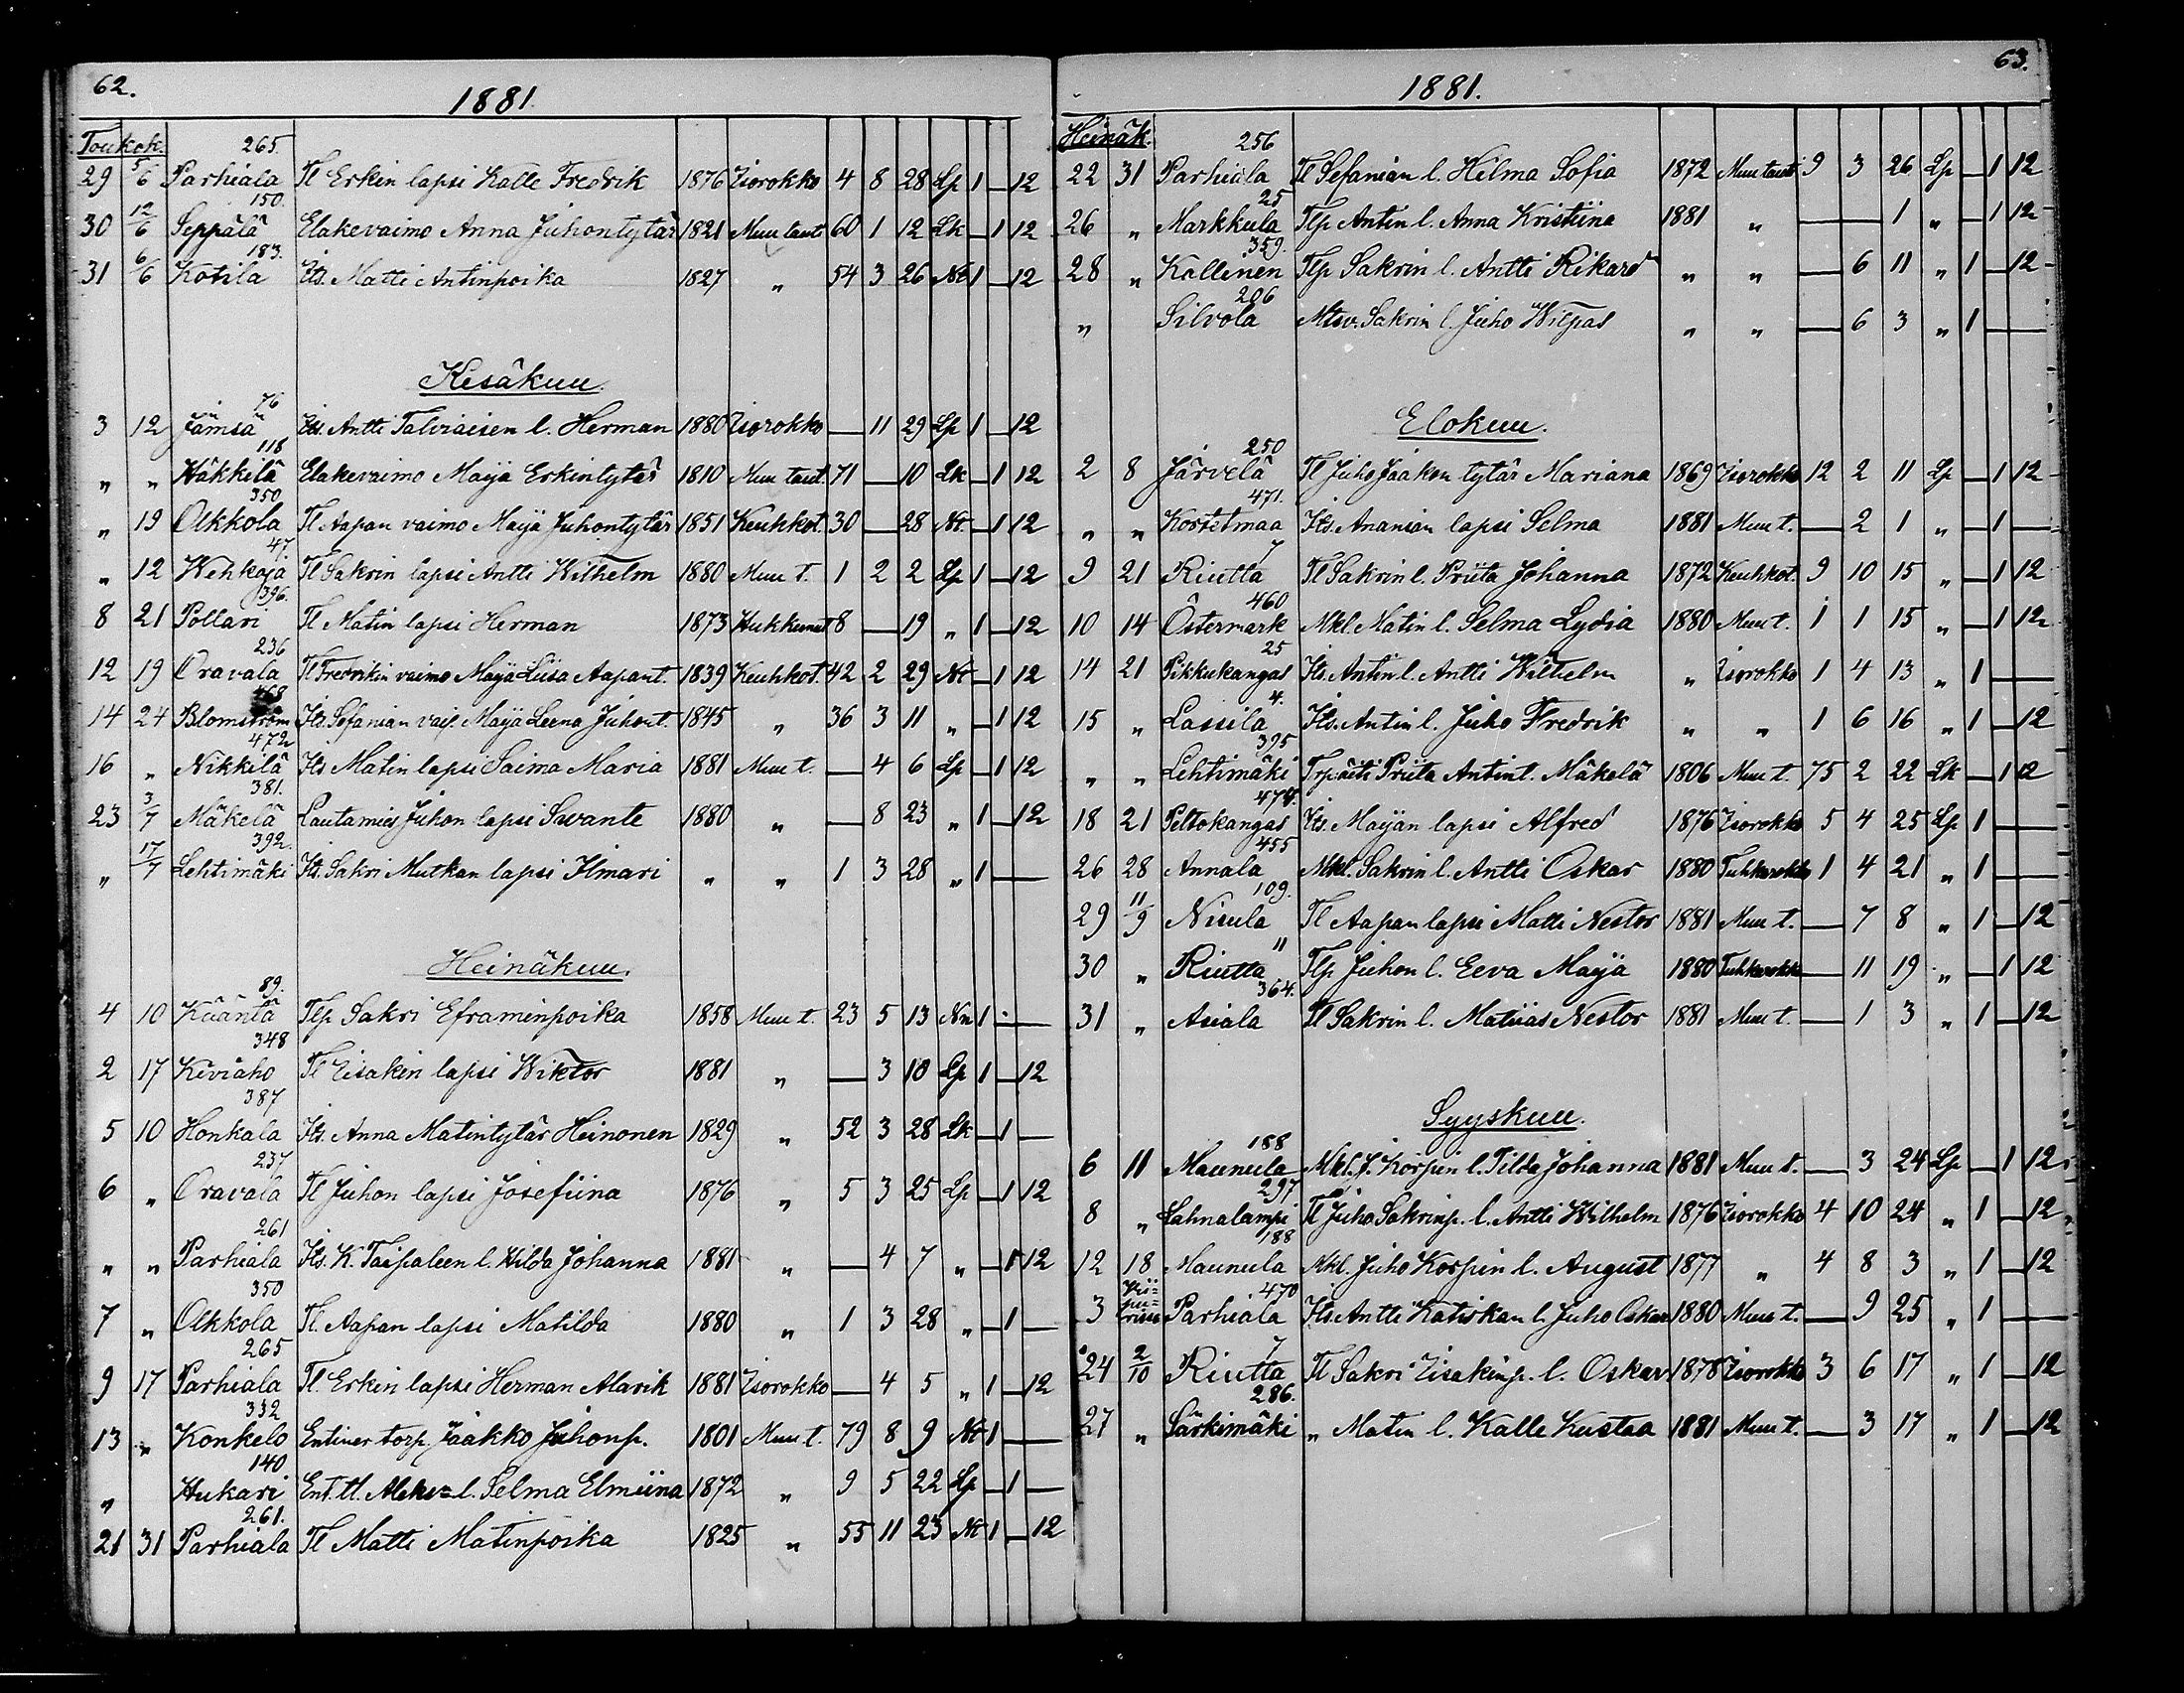 62.
1881.
Toukok. 265.
29 5/6 Parhiala Tl Erkin lapsi Kalle Fredrik 1876 Isorokko 4 8 28 Lp 1 — 12
150.
30 12/6 Seppälä Elakevaimo Anna Juhontytär 1821 Muu taut. 60 1 12 Lk — 1 12
183.
31 6/6 Kotila Its. Matti Antinpoika 1827 " 54 3 26 Nt 1 — 12
Kesäkuu.
76
3 12 Jämsä Its. Antti Talviaisen l. Herman 1880 Isorokko — 11 29 Lp 1 — 12
118
" " Häkkilä Elakevaimo Maija Erkintytär 1810 Muu taut. 71 — 10 Lk — 1 12
350
" 19 Olkkola Tl. Aapan vaimo Maija Juhontytär 1851 Keuhkot. 30 — 28 Nt. — 1 12
47.
" 12 Wehkoja Tl Sakrin lapsi Antti Wilhelm 1880 Muu t. 1 2 2 Lp 1 — 12
396.
8 21 Pollari Tl Matin lapsi Herman 1873 Hukkunut 8 — 19 " 1 — 12
236
12 19 Oravala Tl Fredrikin vaimo Maija Liisa Aapant. 1839 Keuhkot. 42 2 29 Nt — 1 12
468
14 24 Blomström Its. Sefanian vaip. Maija Leena Juhont. 1845 " 36 3 11 " — 1 12
472
16 " Nikkilä Its Matin lapsi Saima Maria 1881 Muu t. — 4 6 Lp — 1 12
381.
23 3/7 Mäkelä Lautamies Juhon lapsi Savante 1880 " — 8 23 " 1 — 12
392.
" 17/7 Lehtimäki Its. Sakri Mutkan lapsi Ilmari " " 1 3 28 " 1 —
Heinäkuu.
89.
4 10 Kääntä Tlp Sakri Eframinpoika 1858 Muu t. 23 5 13 Nn 1 —
348
2 17 Kiviaho Tl Eisakin lapsi Wiktor 1881 " — 3 10 Lp 1 — 12
387
5 10 Honkala Its. Anna Matintytär Heinonen 1829 " 52 3 28 Lk — 1 —
237
6 " Oravala Tl Juhon lapsi Josefiina 1876 " 5 3 25 Lp — 1 12
261
" " Parhiala Its. K. Taipaleen l. Hilda Johanna 1881 " — 4 7 " — 1 12
350
7 " Olkkola Tl. Aapan lapsi Matilda 1880 " 1 3 28 " — 1 —
265
9 17 Parhiala Tl. Erkin lapsi Herman Alarik 1881 Isorokko — 4 5 " 1 — 12
332
13 " Konkelo Entinen torp. Jaakko Juhonp. 1801 Muu t. 79 8 9 Nt 1 —
140
" Hukari Ent. tl. l. Selma Elmiina 1872 " 9 5 22 Lp — 1 —
261.
21 31 Parhiala Tl Matti Matinpoika 1825 " 55 11 23 Nt 1 — 12
63.
1881.
Heinäk. 256
22 31 Parhiala Tl Sefanian l. Hilma Sofia 1872 Muu tauti 9 3 26 Lp — 1 12
25
26 " Markkula Tlp Antin l. Anna Kristiina 1881 " — — 1 " — 1 12
359.
28 " Kallinen Tlp Sakrin l. Antti Rikard " " — 6 11 " 1 — 12
206
" Silvola Mtsv. Sakrin l. Juho Wilpas " " — 6 3 " 1 —
Elokuu.
250
2 8 Järvelä Tl Juho Jaakon tytär Mariana 1869 Isorokko 12 2 11 Lp — 1 12
471.
" " Kortetmaa Its. Ananian lapsi Selma 1881 Muu t. — 2 1 " — 1 —
7
9 21 Riutta Tl Sakrin l. Priita Johanna 1872 Keuhkot. 9 10 15 " — 1 12
460
10 14 Östermark Mkl. Matin l. Selma Lydia 1880 Muu t. 1 1 15 " — 1 12
25
14 21 Pikkukangas Its. Antin l. Antti Wilhelm " Isorokko 1 4 13 " 1 —
4.
15 " Lassila Its. Antin l. Juho Fredrik " " 1 6 16 " 1 — 12
395
" " Lehtimäki Trp. äiti Priita Antint. Mäkelä 1806 Muu t. 75 2 22 Lk — 1 12
474.
18 21 Peltokangas Its. Maijan lapsi Alfred 1876 Isorokko 5 4 25 Lp 1 —
455
26 28 Annala Mkl. Sakrin l. Antti Oskar 1880 Tuhkarokko 1 4 21 " 1 —
109.
29 11/9 Nisula Tl Aapan lapsi Matti Nestor 1881 Muu t. — 7 8 " 1 — 12
11
30 " Riutta Tlp Juhon l. Eeva Maija 1880 Tuhkarokko — 11 19 " — 1 12
364.
31 " Asiala Tl Sakrin l. Matias Nestor 1881 Muu t. — 1 3 " 1 — 12
Syyskuu.
188
6 11 Maunula Mkl. J. Korpin l. Tilda Johanna 1881 Muu t. — 3 24 Lp — 1 12
297
8 " Lahnalampi Tl Juho Sakrinp. l. Antti Wilhelm 1876 Isorokko 4 10 24 " 1 — 12
188
12 18 Maunula Mkl. Juho Korpin l. August 1877 " 4 8 3 " 1 — 12
470
3 Parhiala Its. Antti Katiskan l. Juho Oskar 1880 Muu t. — 9 25 " 1 —
7
24 2/10 Riutta Tl Sakri Iisakinp. l. Oskar 1878 Isorokko 3 6 17 " 1 — 12
286.
27 " Särkimäki " Matin l. Kalle Kustaa 1881 Muu t. — 3 17 " 1 — 12